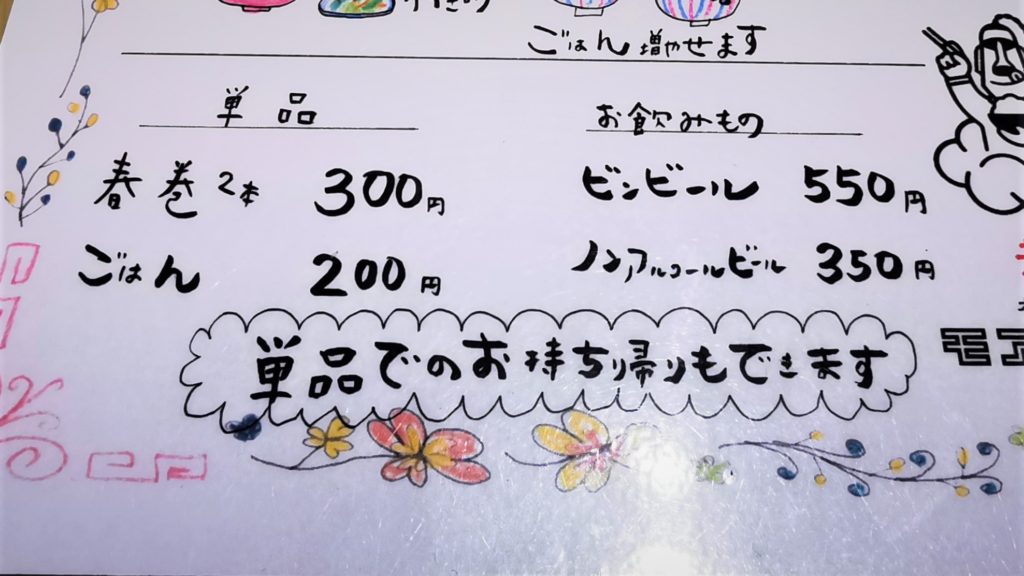 ごはん 増やせます
単品
お飲みもの
春巻 2本 300円
ビンビール 550円
ごはん 200円
ノンアルコールビール 350円
単品でのお持ち帰りもできます